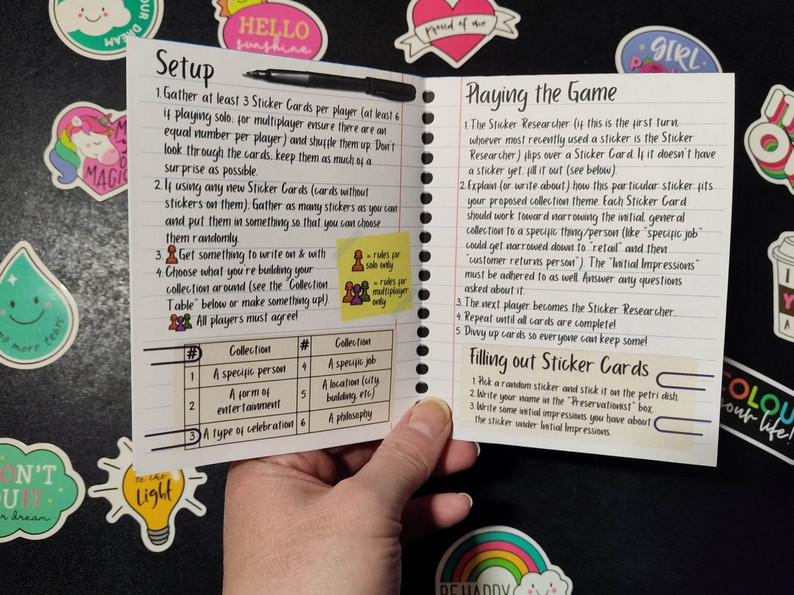 Setup
1. Gather at least 3 Sticker Cards per player (at least 6
if playing solo; for multiplayer ensure there are an
equal number per player) and shuffle them up. Don't
look through the cards, keep them as much of a
surprise as possible.
2. If using any new Sticker Cards (cards without
stickers on them), Gather as many stickers as you can
and put them in something so that you can choose
them randomly.
3. Get something to write on & with
4. Choose what you're building your
collection around (see the "Collection
Table" below or make something up!)
All players must agree!
= rules for
solo only
= rules for
multiplayer
only
# Collection # Collection
1 A specific person 4 A specific job
2 A form of entertainment 5 A location (city, building, etc)
3 A type of celebration 6 A philosophy
Playing the Game
1. The Sticker Researcher (if this is the first turn,
whoever most recently used a sticker is the Sticker
Researcher) flips over a Sticker Card. If it doesn't have
a sticker yet, fill it out (see below).
2. Explain (or write about) how this particular sticker fits
your proposed collection theme. Each Sticker Card
should work toward narrowing the initial, general
collection to a specific thing/person (like "specific job"
could get narrowed down to "retail" and then
"customer returns person"). The "Initial Impressions"
must be adhered to as well. Answer any questions
asked about it.
3. The next player becomes the Sticker Researcher.
4. Repeat until all cards are complete!
5. Divvy up cards so everyone can keep some!
Filling out Sticker Cards
1. Pick a random sticker and stick it on the petri dish.
2. Write your name in the "Preservationist" box.
3. Write some initial impressions you have about
the sticker under Initial Impressions.
DREAM
HELLO
sunshine
proud of me
GIRL
MAGIC
no more tears
light
COLOU
your life!
BE HAPPY